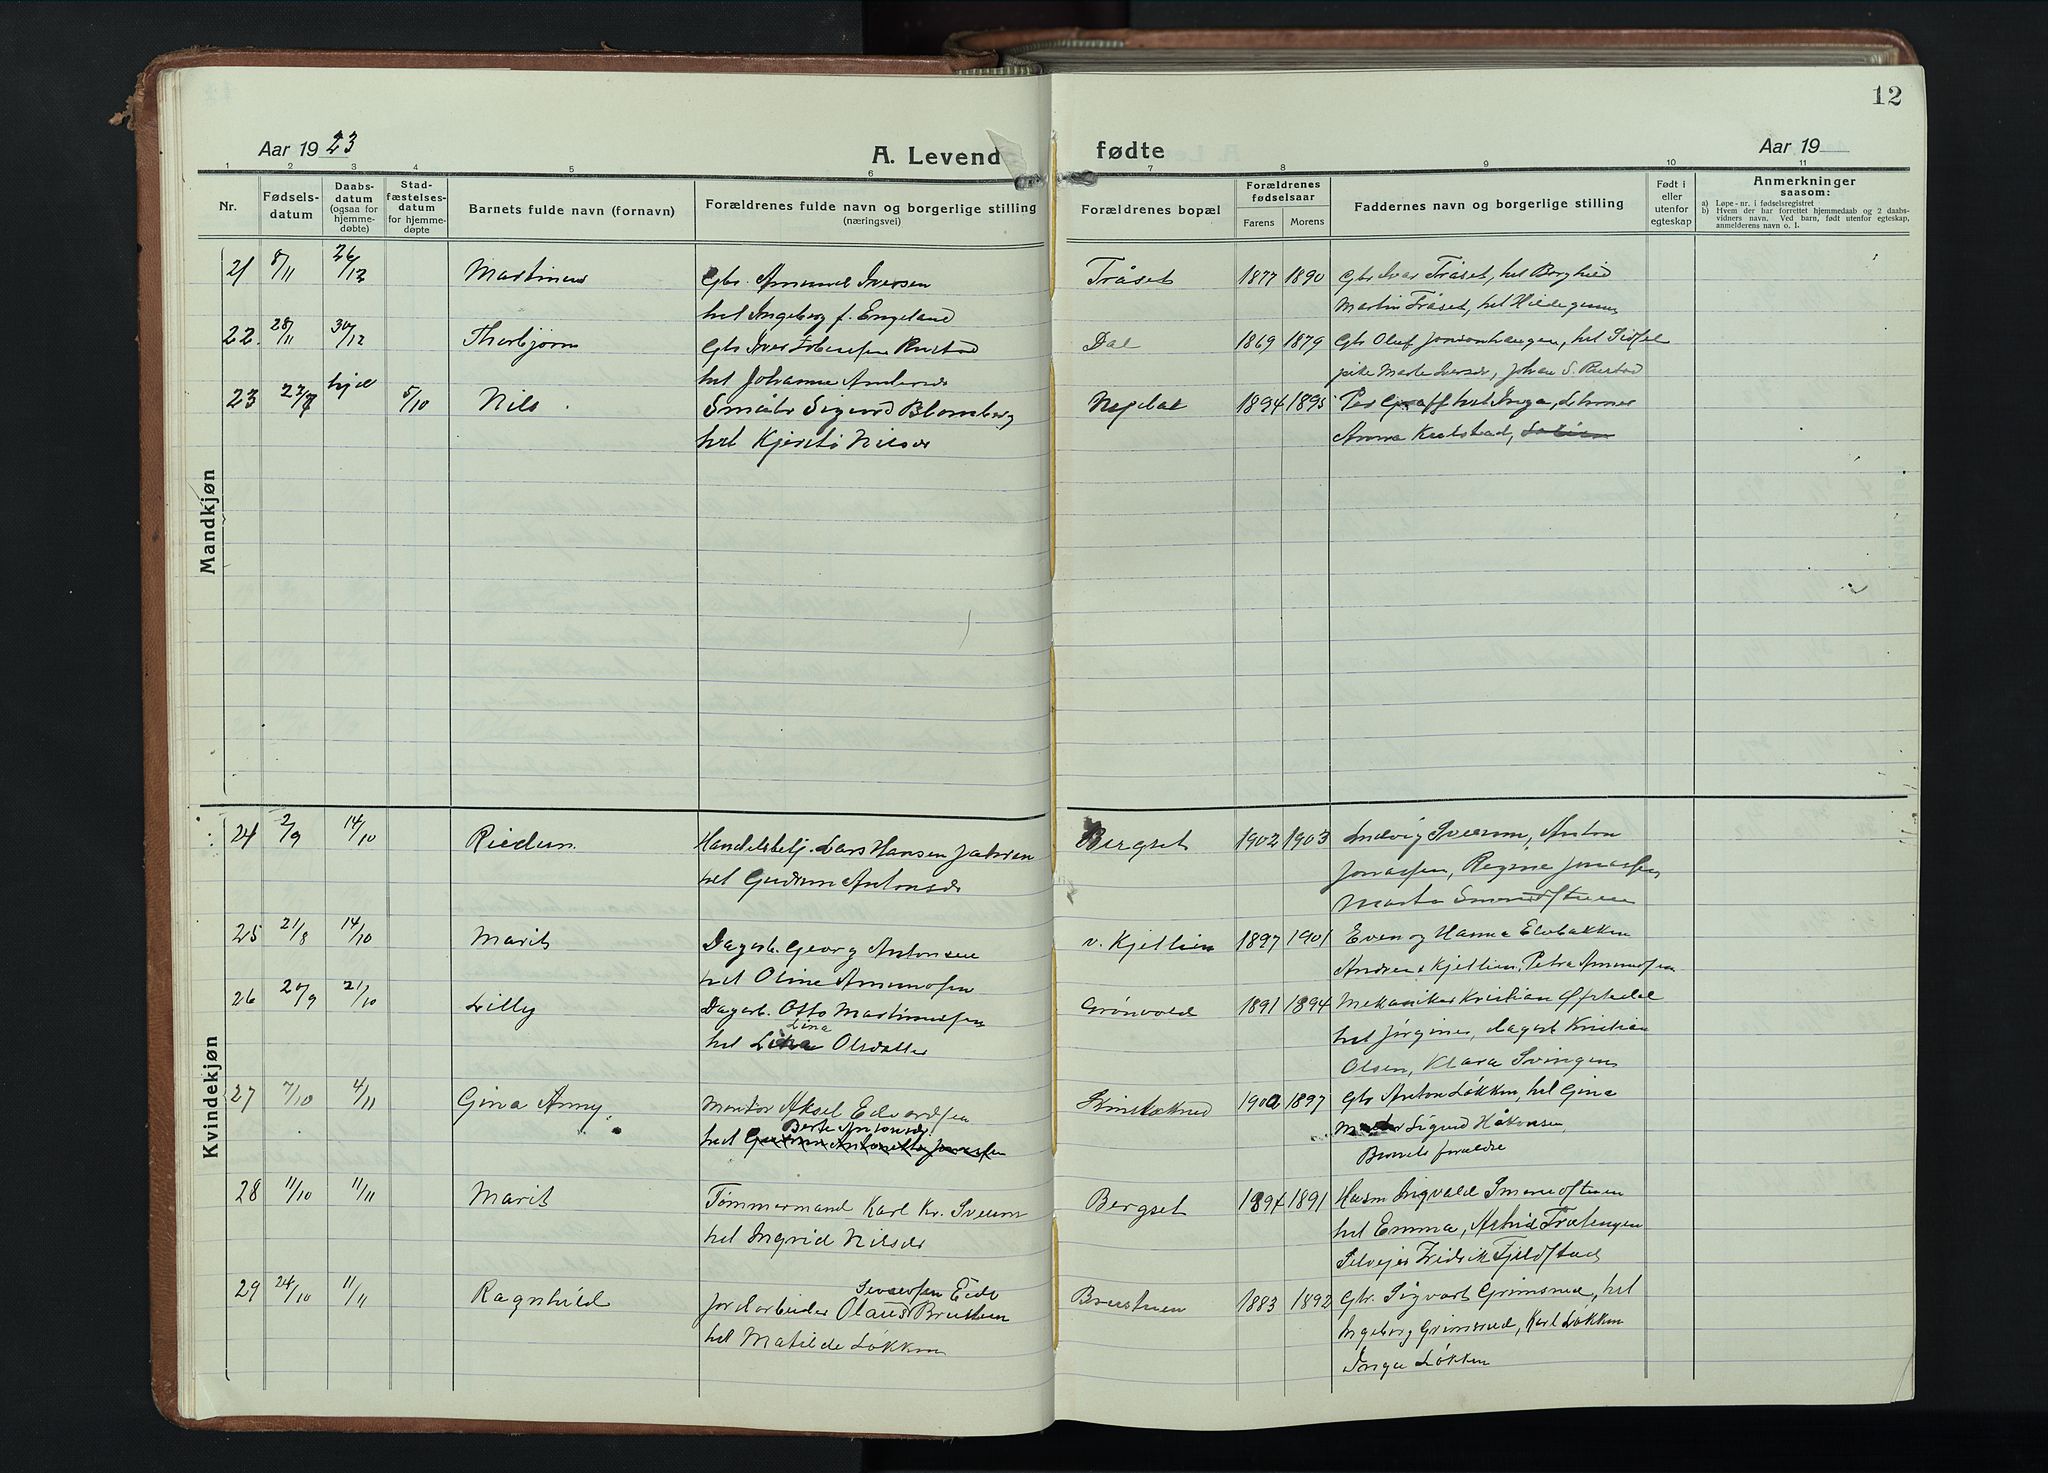 12
Aar 1923
A. Levend
fødte
Aar 19
1 2 3 4 5 6 7 8 9 10 11
Nr.
Fødsels-
datum
Daabs-
datum
(ogsaa for
hjemme-
døbte)
Stad-
fæstelses-
datum
for hjemme-
døpte
Barnets fulde navn (fornavn)
Forældrenes fulde navn og borgerlige stilling
(næringsvei)
Forældrenes bopæl
Forældrenes
fødselsaar
Farens Morens
Faddernes navn og borgerlige stilling
Født i
eller
utenfor
egteskap
Anmerkninger
saasom:
a) Løpe-nr. i fødselsregistret
b) Hvem der har forrettet hjemmedaab og 2 daabs-
vidners navn. Ved barn, født utenfor egteskap,
anmelderens navn o. l.
Mandkjøn
21 8/11 26/12 Martinus Gbr. Amund Iversen Tråset 1877 1890 Gbr Ivar Tråset, hst Borghild
hst Ingeborg f. Engeland Martin Tråset, hst Hildegunn
22. 28/11 30/12 Thorbjørn Gbr Iver Rustad Dal 1869 1879 Gbr Oluf Jonsonhaugen, hst
hst Johanne Andersdr pike Marte Iversdr, Johan S. Rustad
23 hjd 5/10 Nils. Småbr Sigurd Blomberg 1894 1895 Per Graff hst Inga,
hst Kjersti Nilsdr Anna
Kvindekjøn
24 2/9 14/10 Riedun Handelsbetj. Lars Hansen Jahren Bergset 1902 1903 Ludvig Sveum, Anton
hst Gudrun Antonsdr Jonassen, Regine Jonassen
Marta
25 21/8 14/10 Marit Dagarb. Georg Antonsen v. Kjellien 1897 1901 Even og Hanna Elvbakken
hst Oline Amundsen Andreas Kjellien, Petra Amundsen
26 20/9 21/10 Lilly Dagarb. Otto Martinussen Grønvold 1891 1894 Mekaniker Kristian Øfstedal
Lina
hst Olsdatter hst Jørgine, dagarb Kristian
Olsen, Klara Svingen
27 7/10 4/11 Gina Anny. Montør Aksel Edvardsen 1900 1897 Gbr Anton Løkken, hst Gina
Berte Antonsdr.
hst Gudrun Antonette Jonassen Sigurd Håkonsen,
Barnets forældre
28 11/10 11/11 Marit Tømmermand Karl Kr. Sveum Bergset 1894 1891 Husm Ingvald
hst Ingrid Nilsdr hst Emma, Astrid Trætengen
Selvejer Fredrik Fjeldstad
29 24/10 11/11 Ragnhild Eide
Jordarbeider Olaus Brustuen Brustuen 1883 1892 Gbr. Sigvart Grimsrud, hst
hst Matilde Løkken Ingeborg Grimsrud, Karl Løkken
Inga Løkken